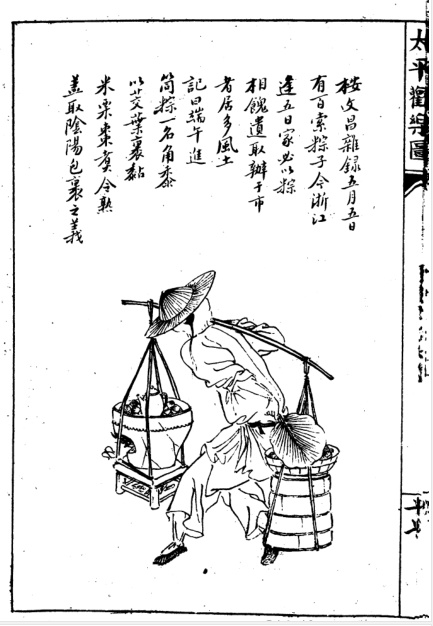 太平歡樂圖
桉文昌雜錄五月五日
有百索粽子今浙江
逢五日家必以粽
相餽遺取辦于市
者居多風土
記曰端午進
筒粽一名角黍
以菰葉裹黏
米栗棗煑令熟
盖取陰陽包裹之義